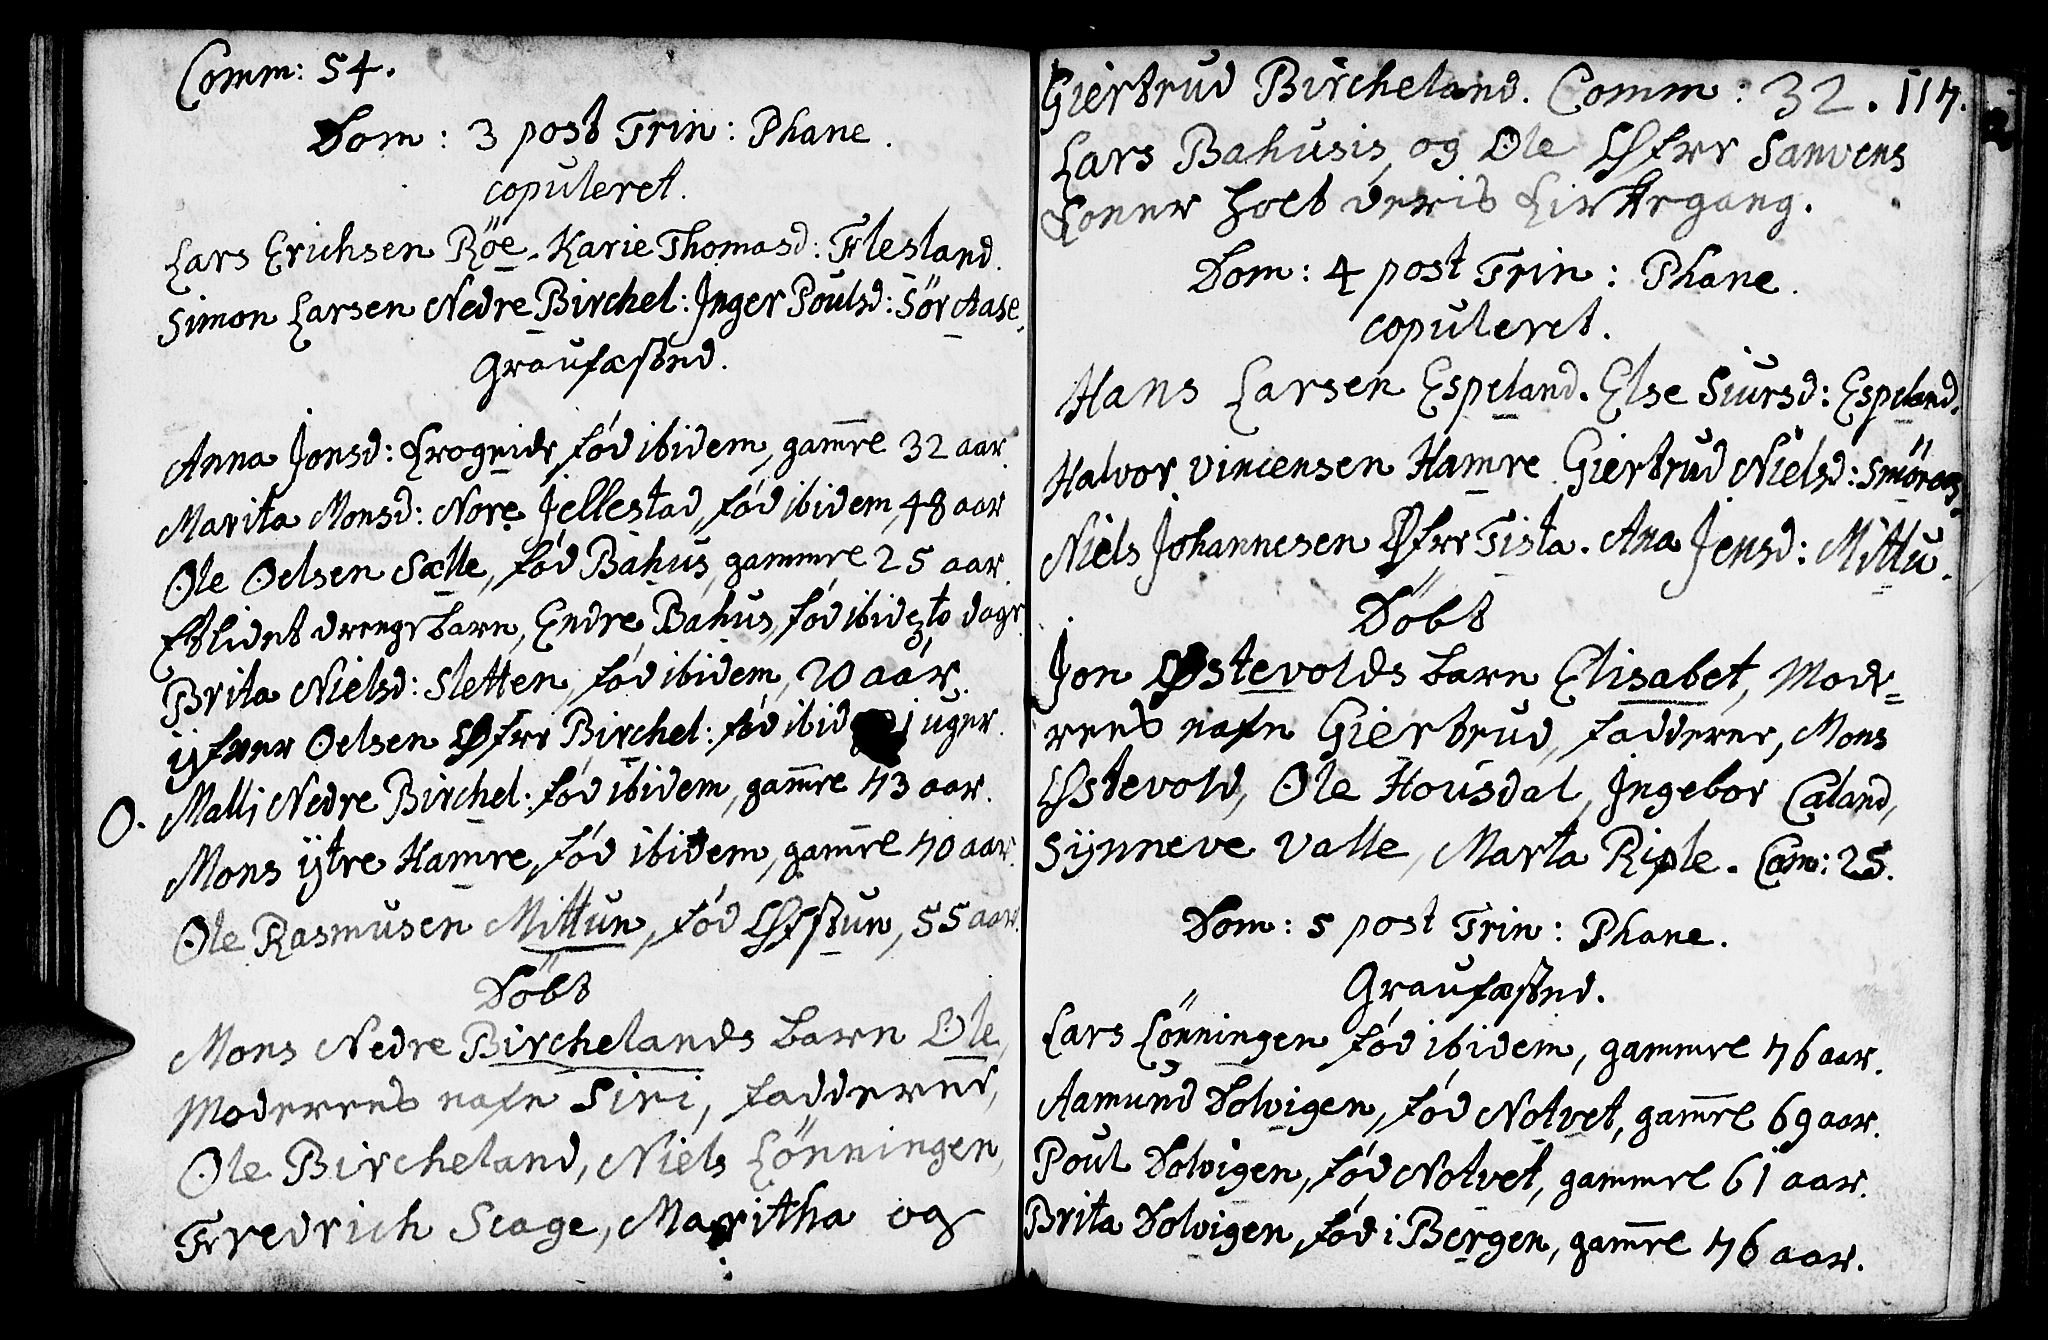 Comm: 54.
Dom: 3 post Trin: Phane.
copuleret.
Lars Erichsen Röe. Karie Thomasd: Flesland.
Simon Larsen Nedre Birchel: Inger Poulsd: Sör Aase.
Graufæsted.
Anna Jonsd: Krogeide, fód ibidem, gam̄el 32 aar.
Marita Monsd: Nore Jellestad, fód ibidem, 48 aar
Ole Oelsen Sælle, fód Bahus, gammel 25 aar.
Et lidet drenge barn, Endre Bahus, fód ibid, to dage.
Brita Nielsd: Sletten, fód ibidem, 20 aar.
Oelsen Øfre Birchel: fód ibid uger.
O. Malli Nedre Birchel: fód ibidem, gam̄el 73 aar.
Mons ÿtre Hamre, fód ibidem, gam̄el 70 aar.
Ole Rasmusen Mittun, fód Øfstun, 55 aar.
Döbt
Mons Nedre Birchelands barn Ole,
Moderens nafn Siri, fadderne,
Ole Bircheland, Niels Lönningen,
Fredrich Scage, Maritha og
Giertrud Bircheland. Comm: 32. 117.
Lars Bahusis, og Ole Øfre Sanvens
Koner holt deris Kirkegang.
Dom: 4 post Trin: Phane.
copuleret.
Hans Larsen Espeland. Else Siursd: Espeland.
Halvor Vincensen Hamre. Giertrud Nielsd: Smöraas.
Niels Johannesen Øfre Tista. Ana Jensd: Mittu.
Döbt
Jon Østevolds barn Elisabet, Mode=
rens nafn Giertrud, fadderne, Mons
Østevold, Ole Housdal, Ingebor Caland,
Sÿnneve Valle, Marta Riple. Com: 25.
Dom: 5 post Trin: Phane.
Graufæsted.
Lars Lönningen fód ibidem, gammel 76 aar.
Aamund Dolvigen, fód Notvet, gam̄el 69 aar.
Poul Dolvigen, fód Notvet, gammel 61 aar.
Brita Dolvigen, fód i Bergen, gam̄el 76 aar.